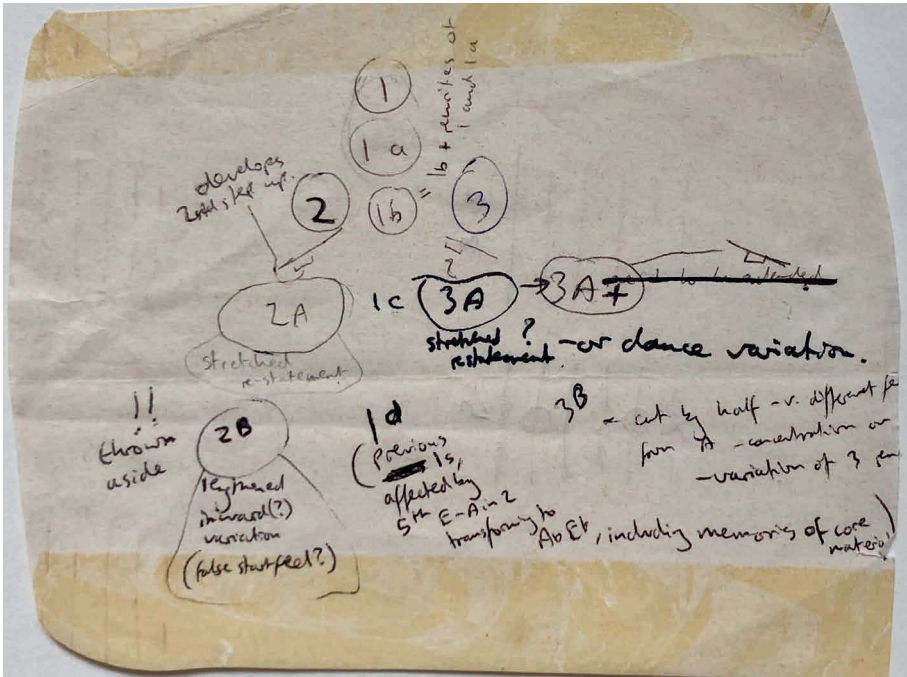 1
1a
1b = 1b + rewrites of
1 and 1a
develops
2nd step up.
2
3
2A
stretched
re-statement
1c
3A
stretched ?
restatement
- or dance variation.
→ 3A+
!!
thrown
aside
2B
lengthened
inward(?)
variation
(false start feel?)
1d
(previous
1s,
affected by
5th E-A in 2
transforming to
Ab Eb, including memories of core
material)
3B
- cut by half - v. different
from A - concentration on
- variation of 3